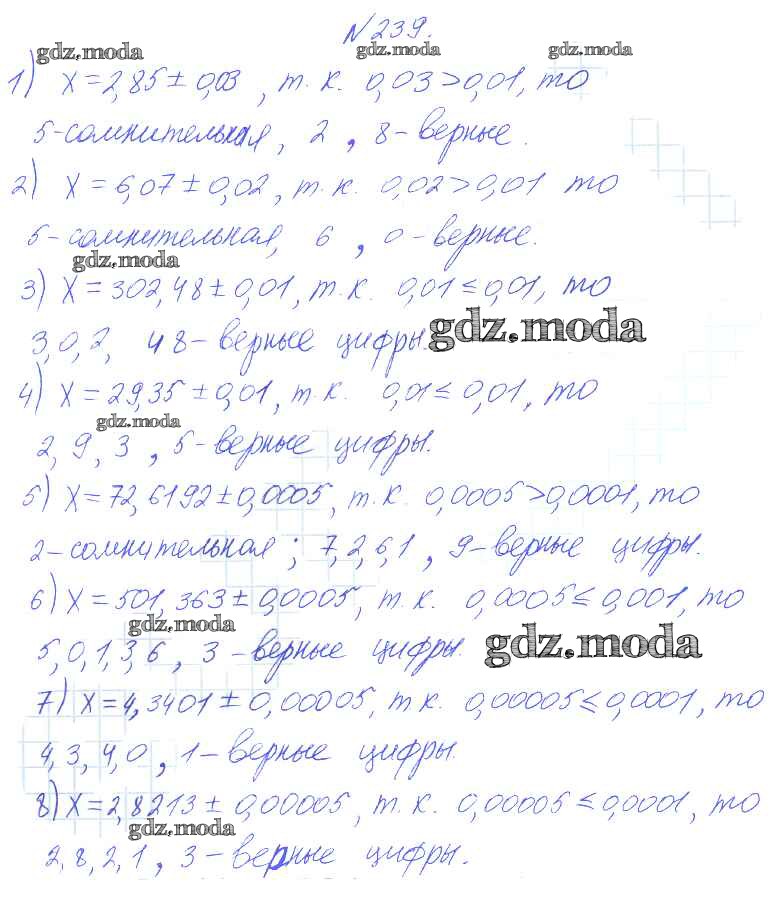 №239.
gdz.moda gdz.moda gdz.moda
1) X=2,85±0,03, т.к. 0,03>0,01, то
5-сомнительная, 2, 8-верные.
2) X=6,07±0,02, т.к. 0,02>0,01 то
5-сомнительная, 6, 0-верные.
gdz.moda
3) X=302,48±0,01, т.к. 0,01≤0,01, то
3,0,2, 48-верные цифры.
gdz.moda
4) X=29,35±0,01, т.к. 0,01≤0,01, то
gdz.moda
2, 9, 3, 5-верные цифры.
5) X=72,6192±0,0005, т.к. 0,0005>0,0001, то
2-сомнительная; 7,2,6,1, 9-верные цифры.
6) X=501,363±0,0005, т.к. 0,0005≤0,001, то
gdz.moda
5,0,1,3,6, 3-верные цифры.
gdz.moda
7) X=4,3401±0,00005, т.к. 0,00005≤0,0001, то
4,3,4,0, 1-верные цифры.
8) X=2,8213±0,00005, т.к. 0,00005≤0,0001, то
gdz.moda
2,8,2,1, 3-верные цифры.